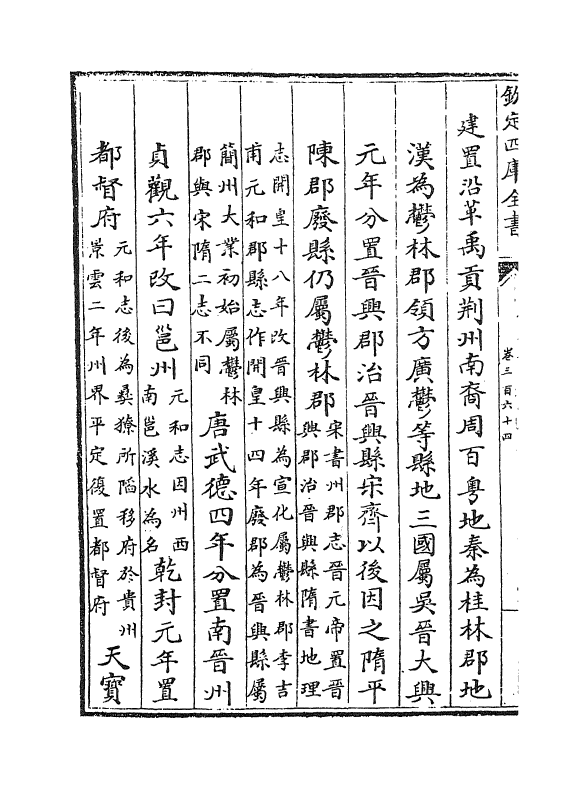 欽定四庫全書
卷三百六十四
建置沿革禹貢荆州南裔周百粤地秦為桂林郡地
漢為鬱林郡領方廣鬱等縣地三國屬吳晉大興
元年分置晉興郡治晉興縣宋齊以後因之隋平
陳郡廢縣仍屬鬱林郡宋書州郡志晉元帝置晉
興郡治晉興縣隋書地理
志開皇十八年改晉興縣為宣化屬鬱林郡李吉
甫元和郡縣志作開皇十四年廢郡為晉興縣屬
簡州大業初始屬鬱林
郡與宋隋二志不同
唐武德四年分置南晉州
貞觀六年改曰邕州元和志因州西
南邕溪水為名
乾封元年置
都督府元和志後為彝獠所陷移府於貴州
景雲二年州界平定復置都督府
天寶